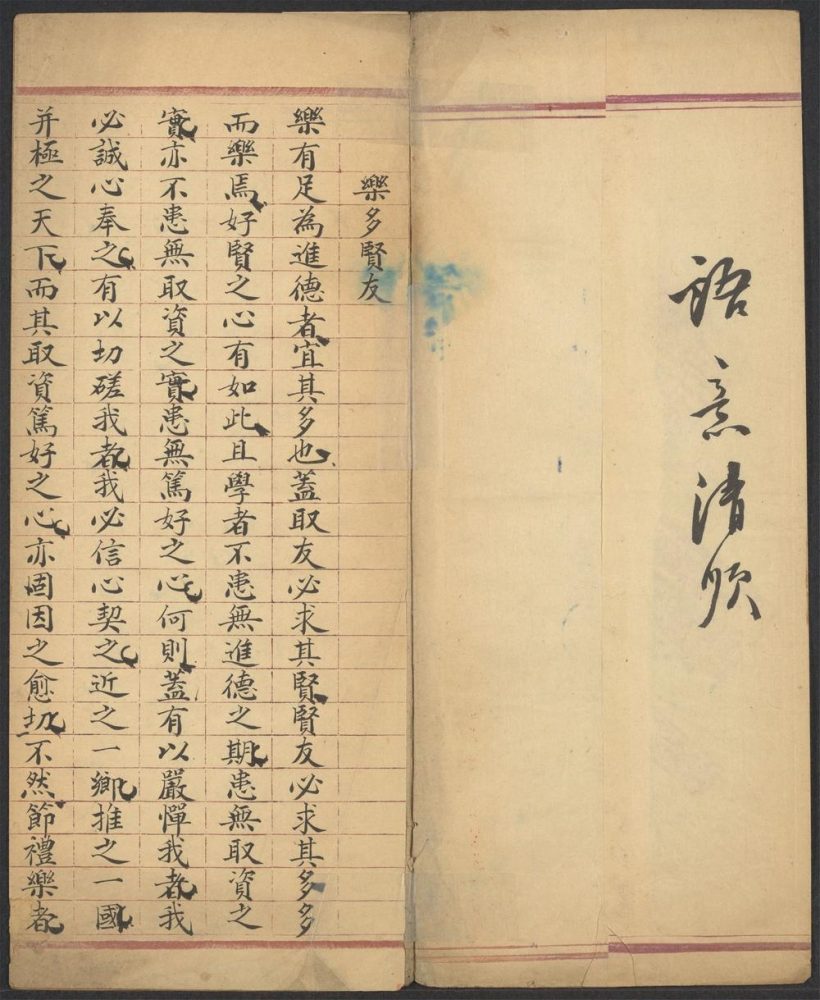 語意清順
樂多賢友
樂有足為進德者宜其多也蓋取友必求其賢賢友必求其多多
而樂焉好賢之心有如此且學者不患無進德之期患無取資之
實亦不患無取資之實患無篤好之心何則蓋有以嚴憚我者我
必誠心奉之有以切磋我者我必信心契之近之一鄉推之一國
并極之天下而其取資篤好之心亦固因之愈切不然節禮樂者